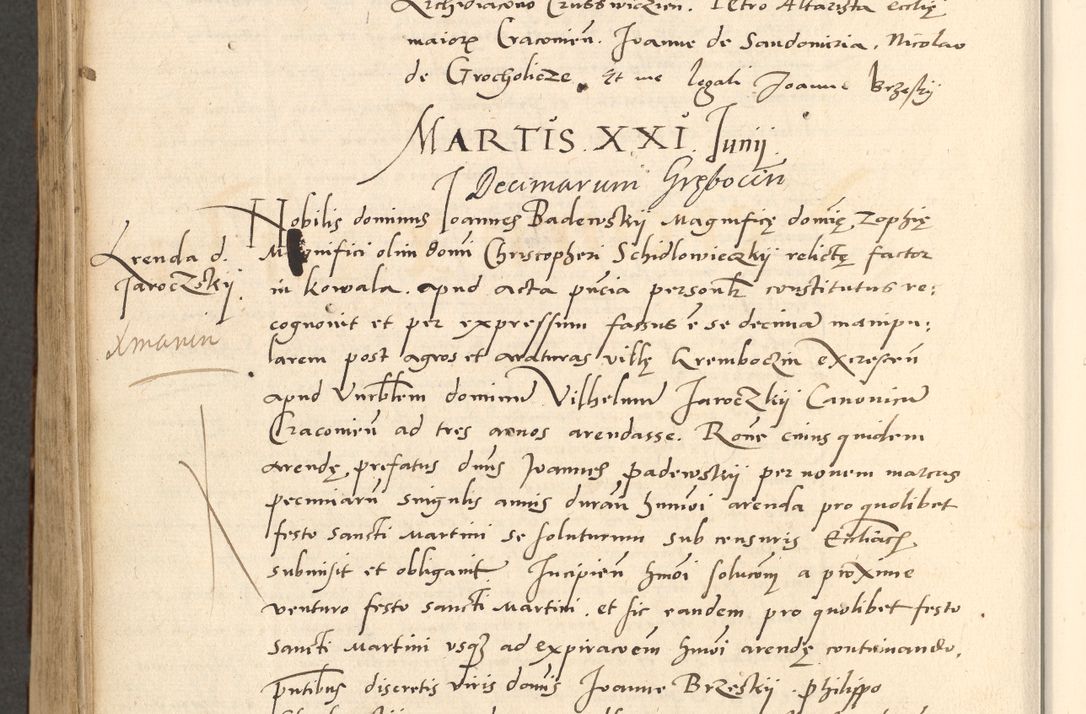 Archidiacono Crusswiczien. Petro Altarista ecclię
maiorꝫ Cracouien. Joanne de Sandomiria. Nicolao
de Grocholicze. Et me legali Joanne Brzeskij
MARTIS. XXI. Junij.
Decimarum Gręboczin
Nobilis dominus Joannes Badewskij Magnificę domię Zophię
Magnifici olim domi Christopheri Schidlowieczkij relictę factor
in Kowala. apud acta pñcia personłr constitutus re:
cognouit et per expressum fassus ẽ se decimã manipu:
larem post agros et araturas villę Kremboczin excrescẽn
apud Vnrblem dominũ Vilhelmũ Jaroczkij Canonicũ
Cracouieñ ad tres annos arendasse. Rone cuius quidem
arendę, prefatus dnus Joannes Padewskij per nouem marcas
pecuniarũ singulis annis durañ hmoi arenda pro quolibet
festo sancti Martini se soluturum sub censuris Eccliãcis
submisit et obligauit. Incipieñ hmoi solucõni a proxime
venturo festo sancti Martini. et sic eandem pro quolibet festo
sancti Martini vsqꝫ ad expiracõem hmoi arendę continuando.
pñtibus discretis viris domis Joanne Brzeskij. Philippo
Arenda d.
Jaroczskij.
Xmanin